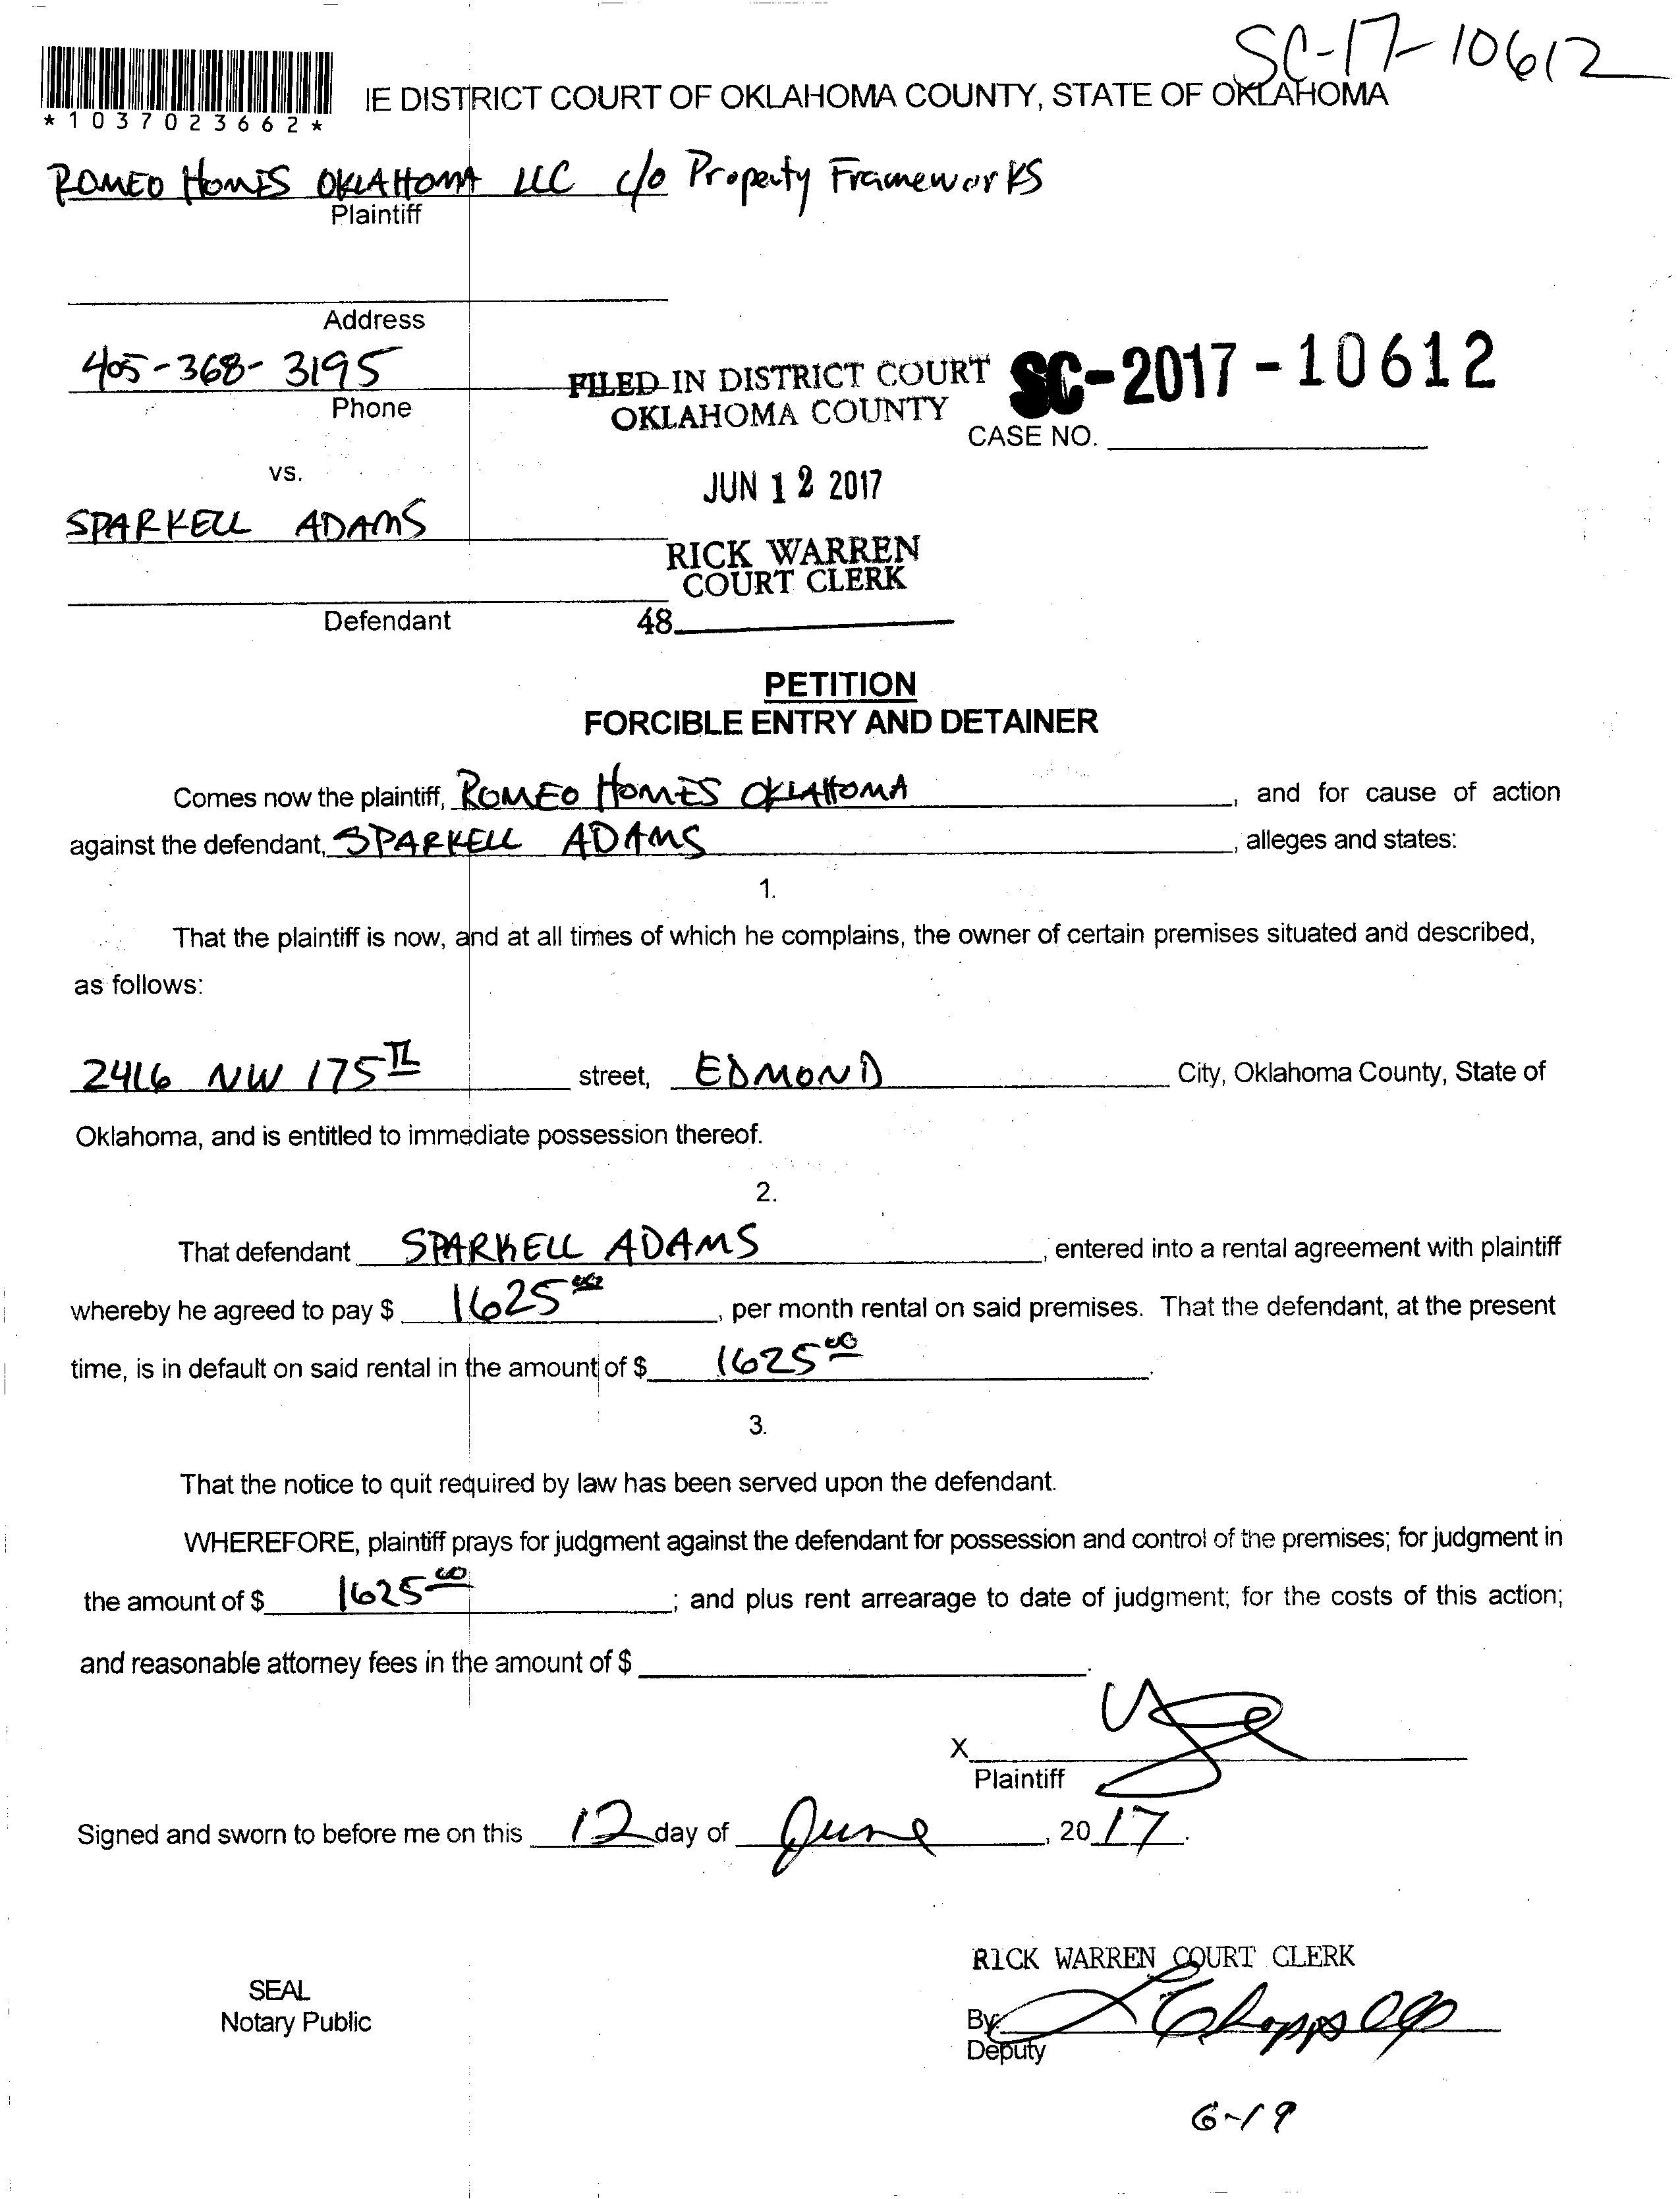 SC-17-10612
IE DISTRICT COURT OF OKLAHOMA COUNTY, STATE OF OKLAHOMA
*1037023662*
ROMEO HOMES OKLAHOMA LLC c/o Property Frameworks
Plaintiff
Address
405-368-3195
Phone
FILED IN DISTRICT COURT
OKLAHOMA COUNTY
SC-2017-10612
CASE NO.
vs.
JUN 12 2017
SPARKELL ADAMS
RICK WARREN
COURT CLERK
Defendant
48
PETITION
FORCIBLE ENTRY AND DETAINER
Comes now the plaintiff, ROMEO HOMES OKLAHOMA, and for cause of action
against the defendant, SPARKELL ADAMS, alleges and states:
1.
That the plaintiff is now, and at all times of which he complains, the owner of certain premises situated and described,
as follows:
2416 NW 175TH street, EDMOND City, Oklahoma County, State of
Oklahoma, and is entitled to immediate possession thereof.
2.
That defendant SPARKELL ADAMS, entered into a rental agreement with plaintiff
whereby he agreed to pay $ 1625 00, per month rental on said premises. That the defendant, at the present
time, is in default on said rental in the amount of $ 1625 00.
3.
That the notice to quit required by law has been served upon the defendant.
WHEREFORE, plaintiff prays for judgment against the defendant for possession and control of the premises; for judgment in
the amount of $ 1625 00; and plus rent arrearage to date of judgment; for the costs of this action;
and reasonable attorney fees in the amount of $ .
X
Plaintiff
Signed and sworn to before me on this 12 day of June, 2017.
RICK WARREN COURT CLERK
SEAL
Notary Public
By:
Deputy
6-19